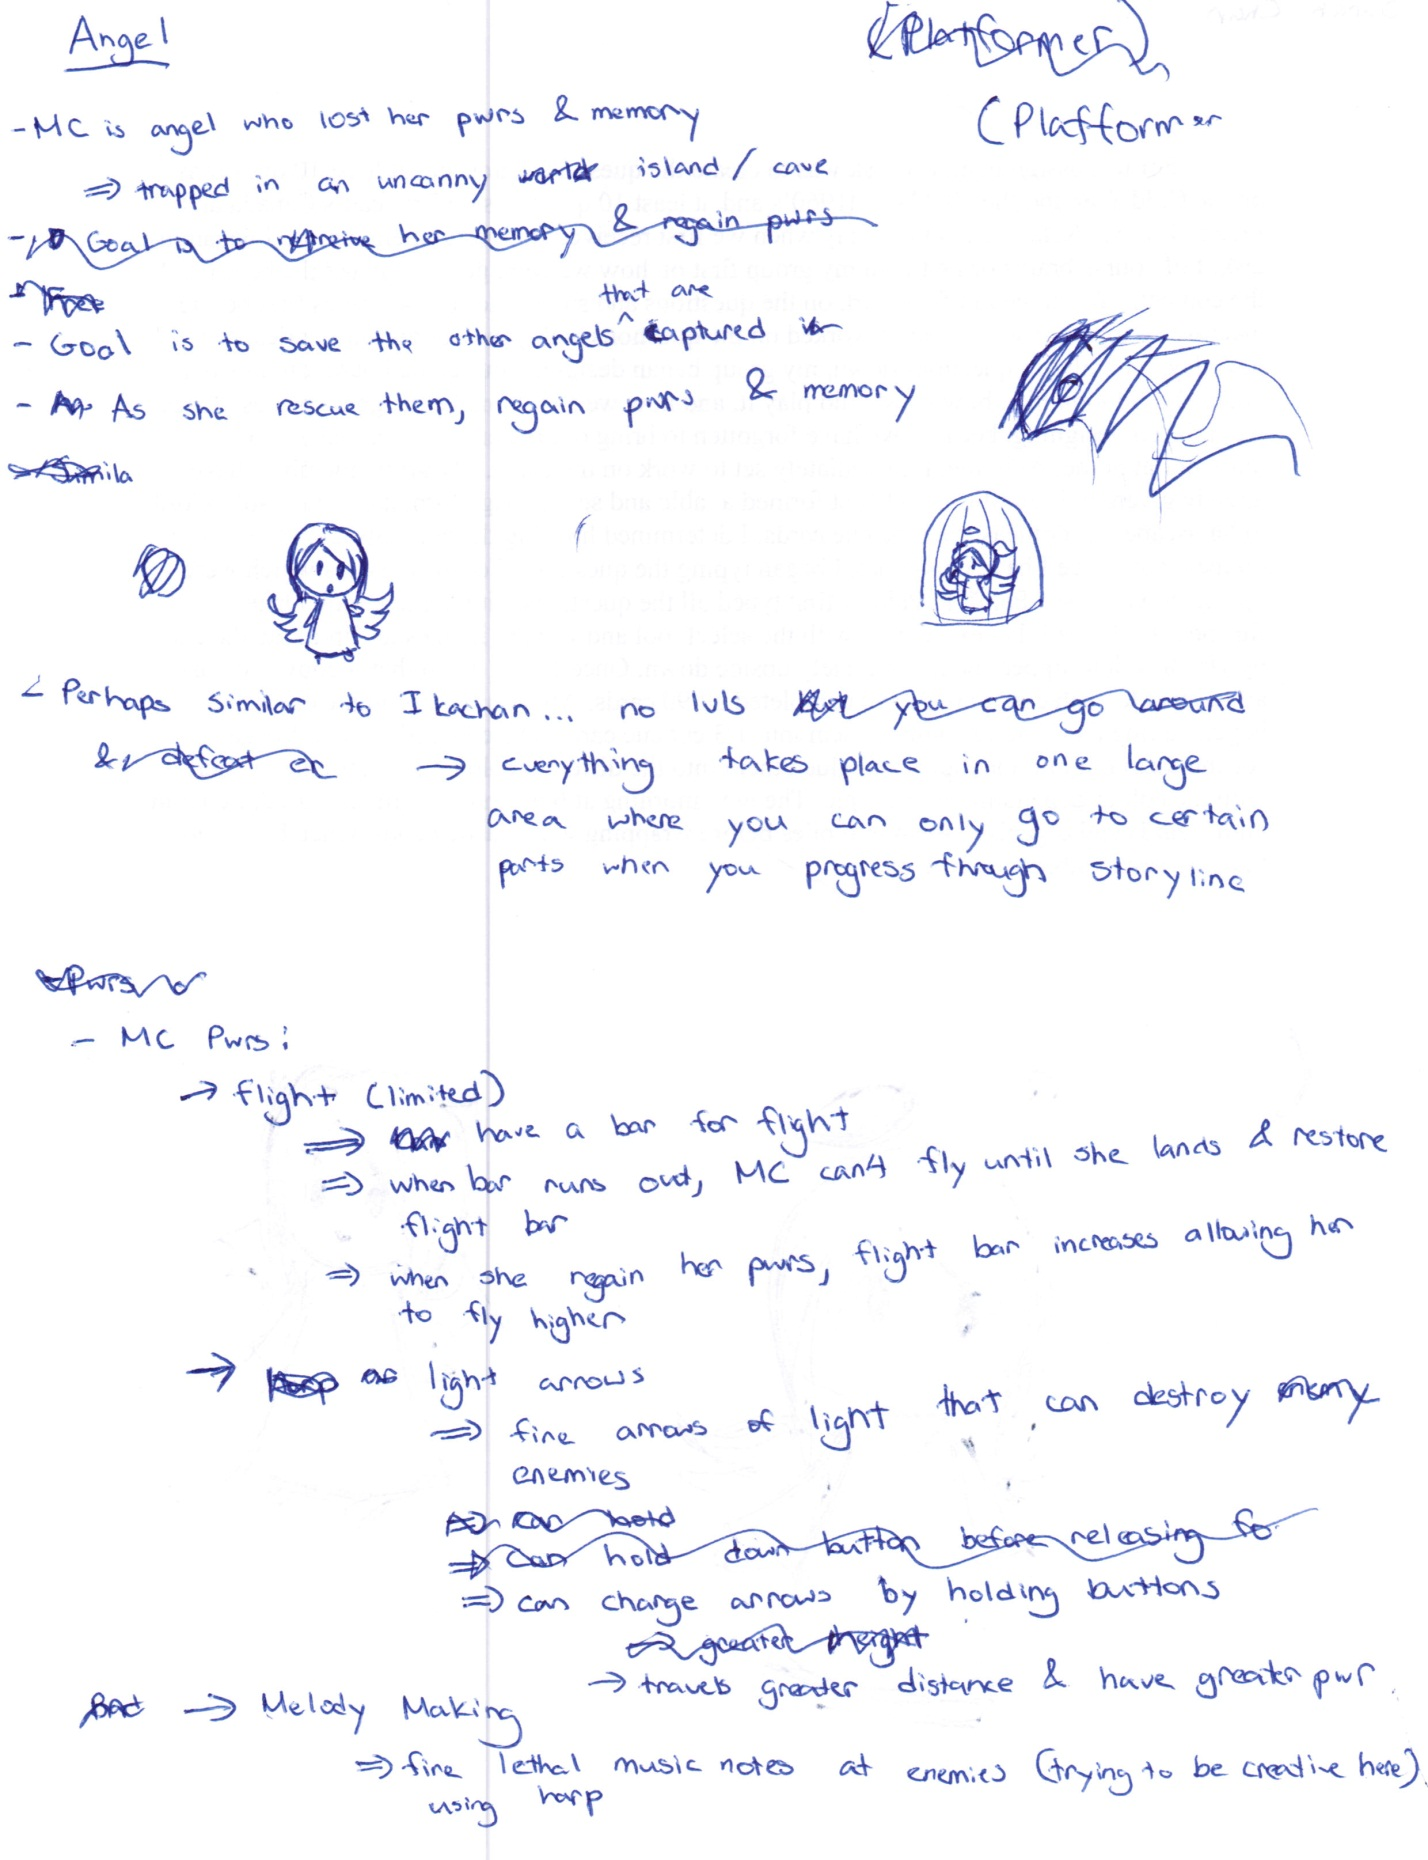 Angel
(Platformer)
(Platformer
- MC is angel who lost her pwrs & memory
⇒ trapped in an uncanny world island / cave
- Goal is to retreive her memory & regain pwrs
- Free
that are
- Goal is to save the other angels ^ captured in
- As she rescue them, regain pwrs & memory
- Simila
- Perhaps similar to Ikachan... no lvls but you can go around
& defeat en → everything takes place in one large
area where you can only go to certain
parts when you progress through storyline
- Pwrs
- MC Pwrs:
→ flight (limited)
⇒ have a bar for flight
⇒ when bar runs out, MC can't fly until she lands & restore
flight bar
⇒ when she regain her pwrs, flight bar increases allowing her
to fly higher
→ harp light arrows
⇒ fire arrows of light that can destroy enemy
enemies
⇒ can hold
⇒ can hold down button before releasing to
⇒ can charge arrows by holding buttons
→ greater height
→ travels greater distance & have greater pwr
→ Melody Making
⇒ fire lethal music notes at enemies (trying to be creative here)
using harp